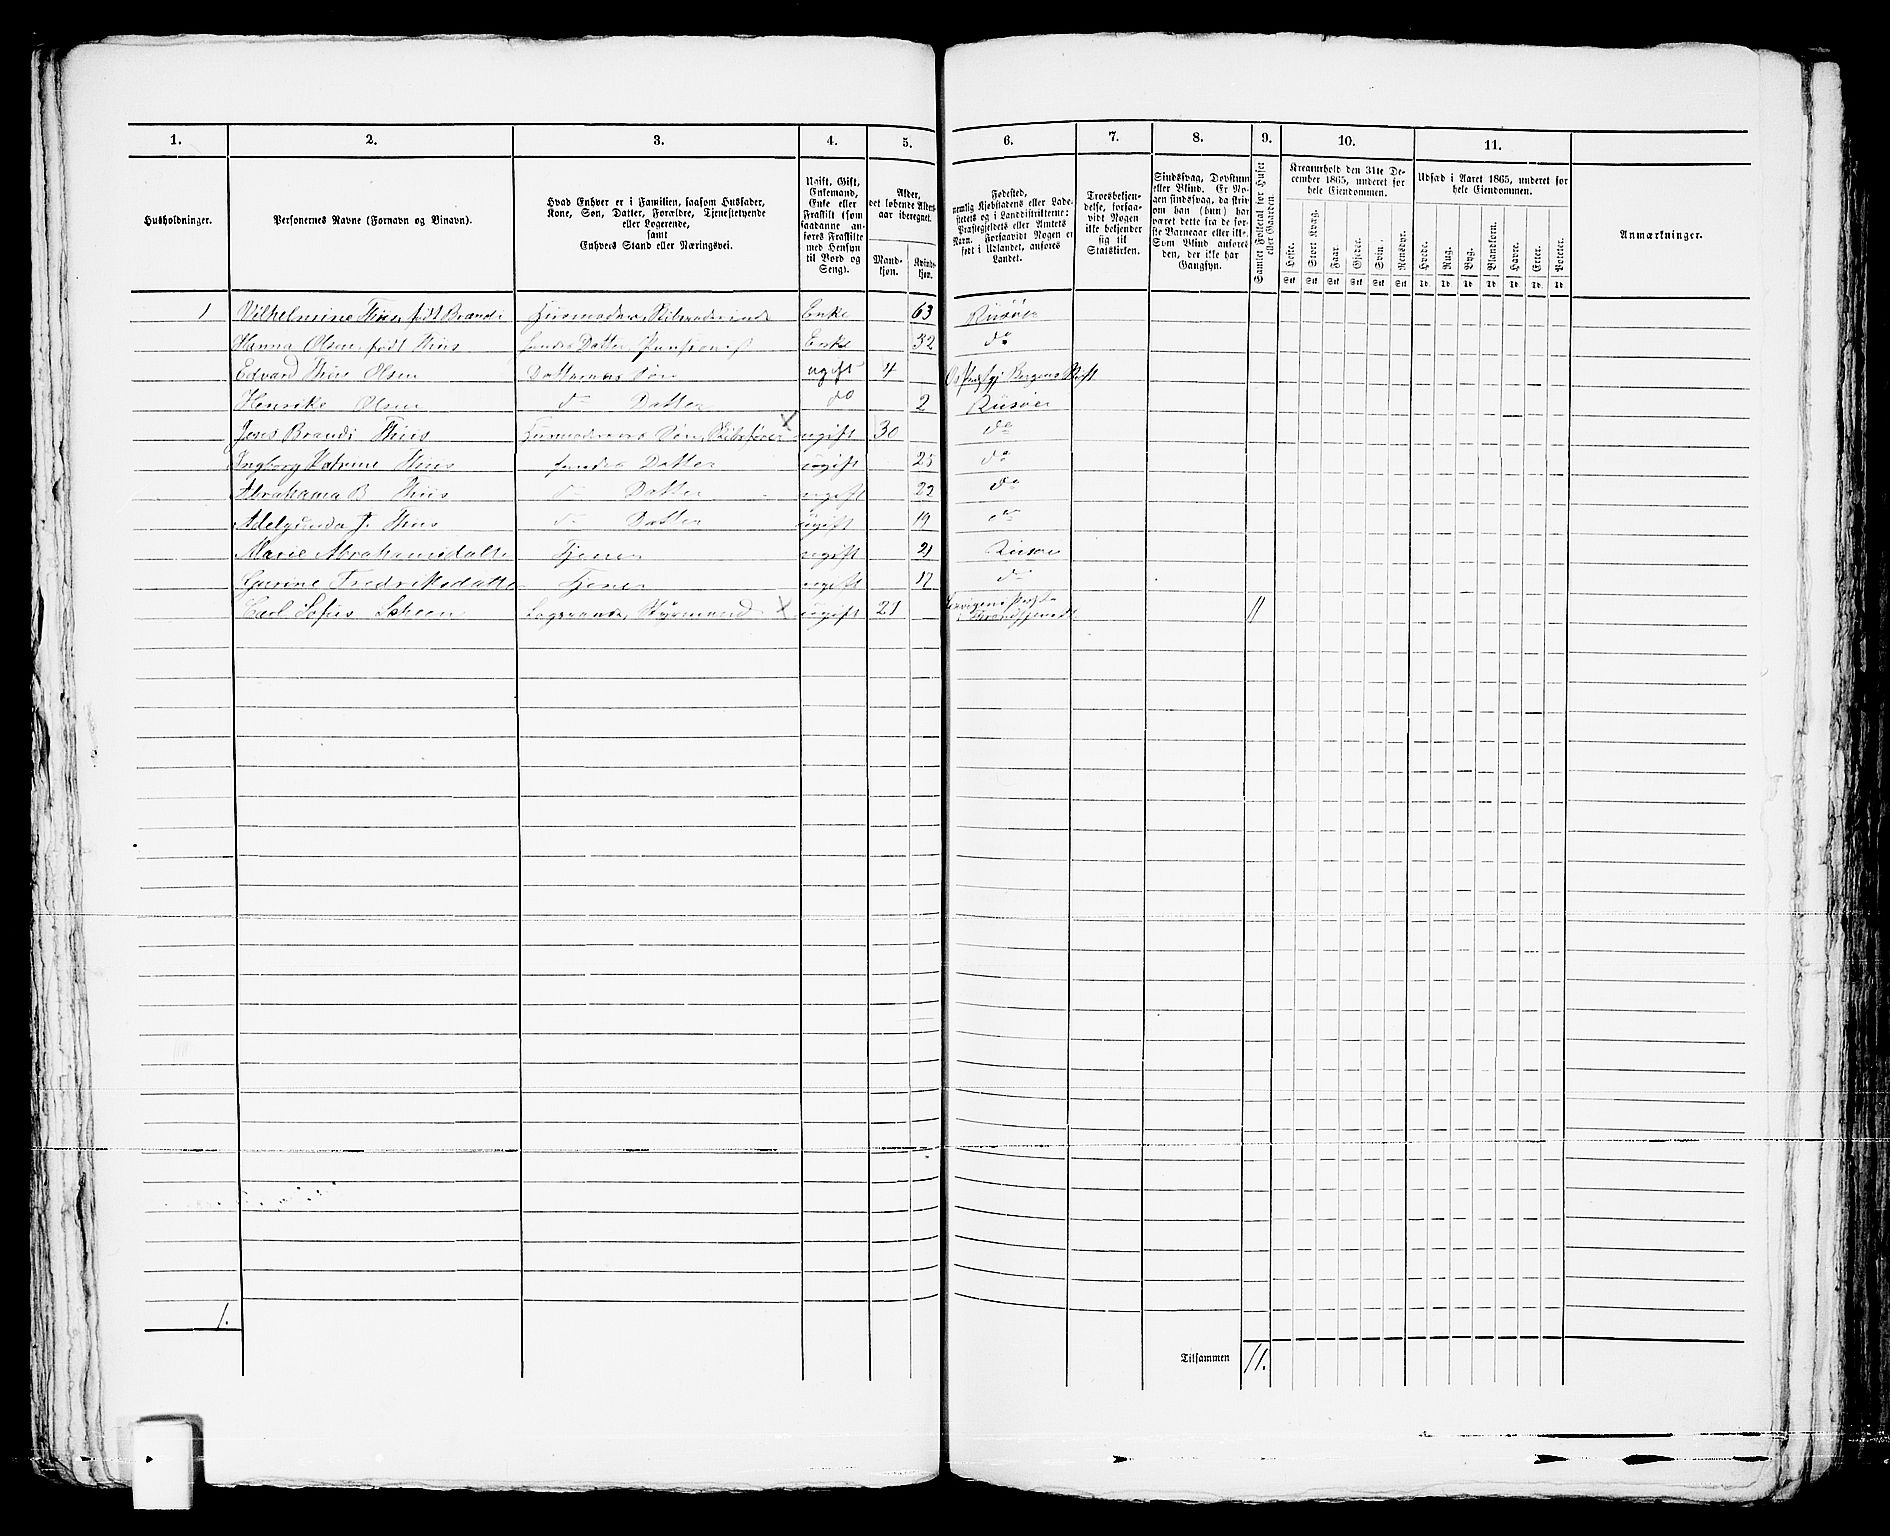 1. 2. 3. 4. 5. 6. 7. 8. 9. 10. 11.
Husholdninger.
Personernes Navne (Fornavn og Tilnavn).
Hvad Enhver er i Familien, saasom Husfader,
Kone, Søn, Datter, Forældre, Tjenestetyende
eller Logerende,
samt
Enhvers Stand eller Næringsvei.
Ugift, Gift,
Enkemand,
Enke eller
Fraskilt (som
saadanne an-
føres Fraskilte
med Hensyn
til Bord og
Seng).
Alder,
det løbende Alders-
aar iberegnet.
Mand-
kjøn.
Kvinde-
kjøn.
Fødested,
nemlig Kjøbstadens eller Lade-
stedets og i Landdistrikterne:
Præstegjeldets eller Amtets
Navn. Forsaavidt Nogen er
født i Udlandet, anføres
Landet.
Troesbekjen-
delse, forsaa-
vidt Nogen
ikke bekjender
sig til
Statskirken.
Sindssvag, Døvstum
eller Blind. Er No-
gen sindssvag, da skriv
om han (hun) har
været dette fra de før-
ste Barneaar eller ikke.
Som Blind anføres
den, der ikke har
Gangsyn.
Samlet Folketal for Huset
eller Gaarden.
Kreaturhold den 31te De-
cember 1865, underet for
hele Eiendommen.
Heste. Stort Kvæg. Faar. Gjeder. Svin. Rensdyr.
Stk Stk Stk Stk Stk Stk
Udsæd i Aaret 1865, underet for
hele Eiendommen.
Hvede. Rug. Byg. Blandkorn. Havre. Erter. Poteter.
Td. Td. Td. Td. Td. Td. Td.
Anmærkninger.
1 Vilhelmine Thiis, født Brandi Huusmoder, Skibsrederinde Enke 63 Riisøer
Hanna Olsen, født Thiis hendes Datter, Pensionist Enke 32 do
Edvard Thiis Olsen Datterens Søn ugift 4 Os Præstgj Bergens Stift
Henrike Olsen do Datter do 2 Riisøer
Jens Brandi Thiis Huusmoderens Søn, Skibsfører X ugift 30 do
Ingborg Katrine Thiis hendes Datter ugift 25 do
Abrahama B Thiis do Datter ugift 22 do
Adelgunda J. Thiis do Datter ugift 19 do
Marie Abrahamsdatter Tjener ugift 21 Riisøer
Gurine Fredriksdatter Tjener ugift 17 do
Carl Sofus Scheen Logerende, Styrmand X ugift 21 11
1.
Tilsammen 11.